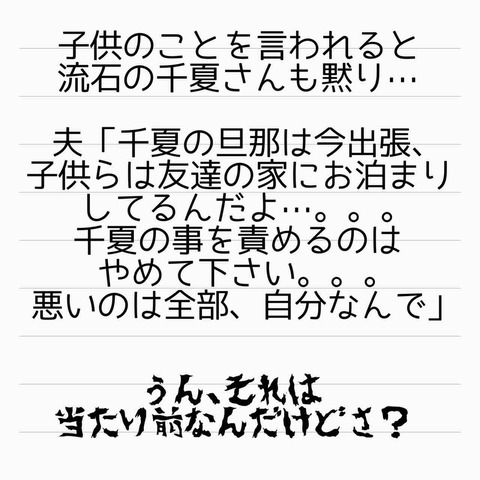 子供のことを言われると
流石の千夏さんも黙り…
夫「千夏の旦那は今出張、
子供らは友達の家にお泊まり
してるんだよ…。。。
千夏の事を責めるのは
やめて下さい。。。
悪いのは全部、自分なんで」
うん、それは
当たり前なんだけどさ？